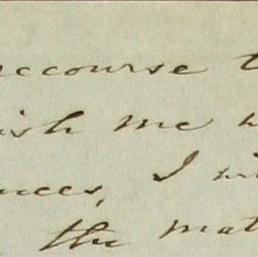 recourse t
ish me w
nces, I wi
the mat